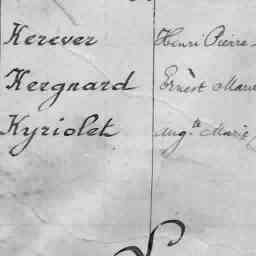 Kerever Henri Pierre
Kergnard Ernest Marie
Kyriolet Aug.te Marie